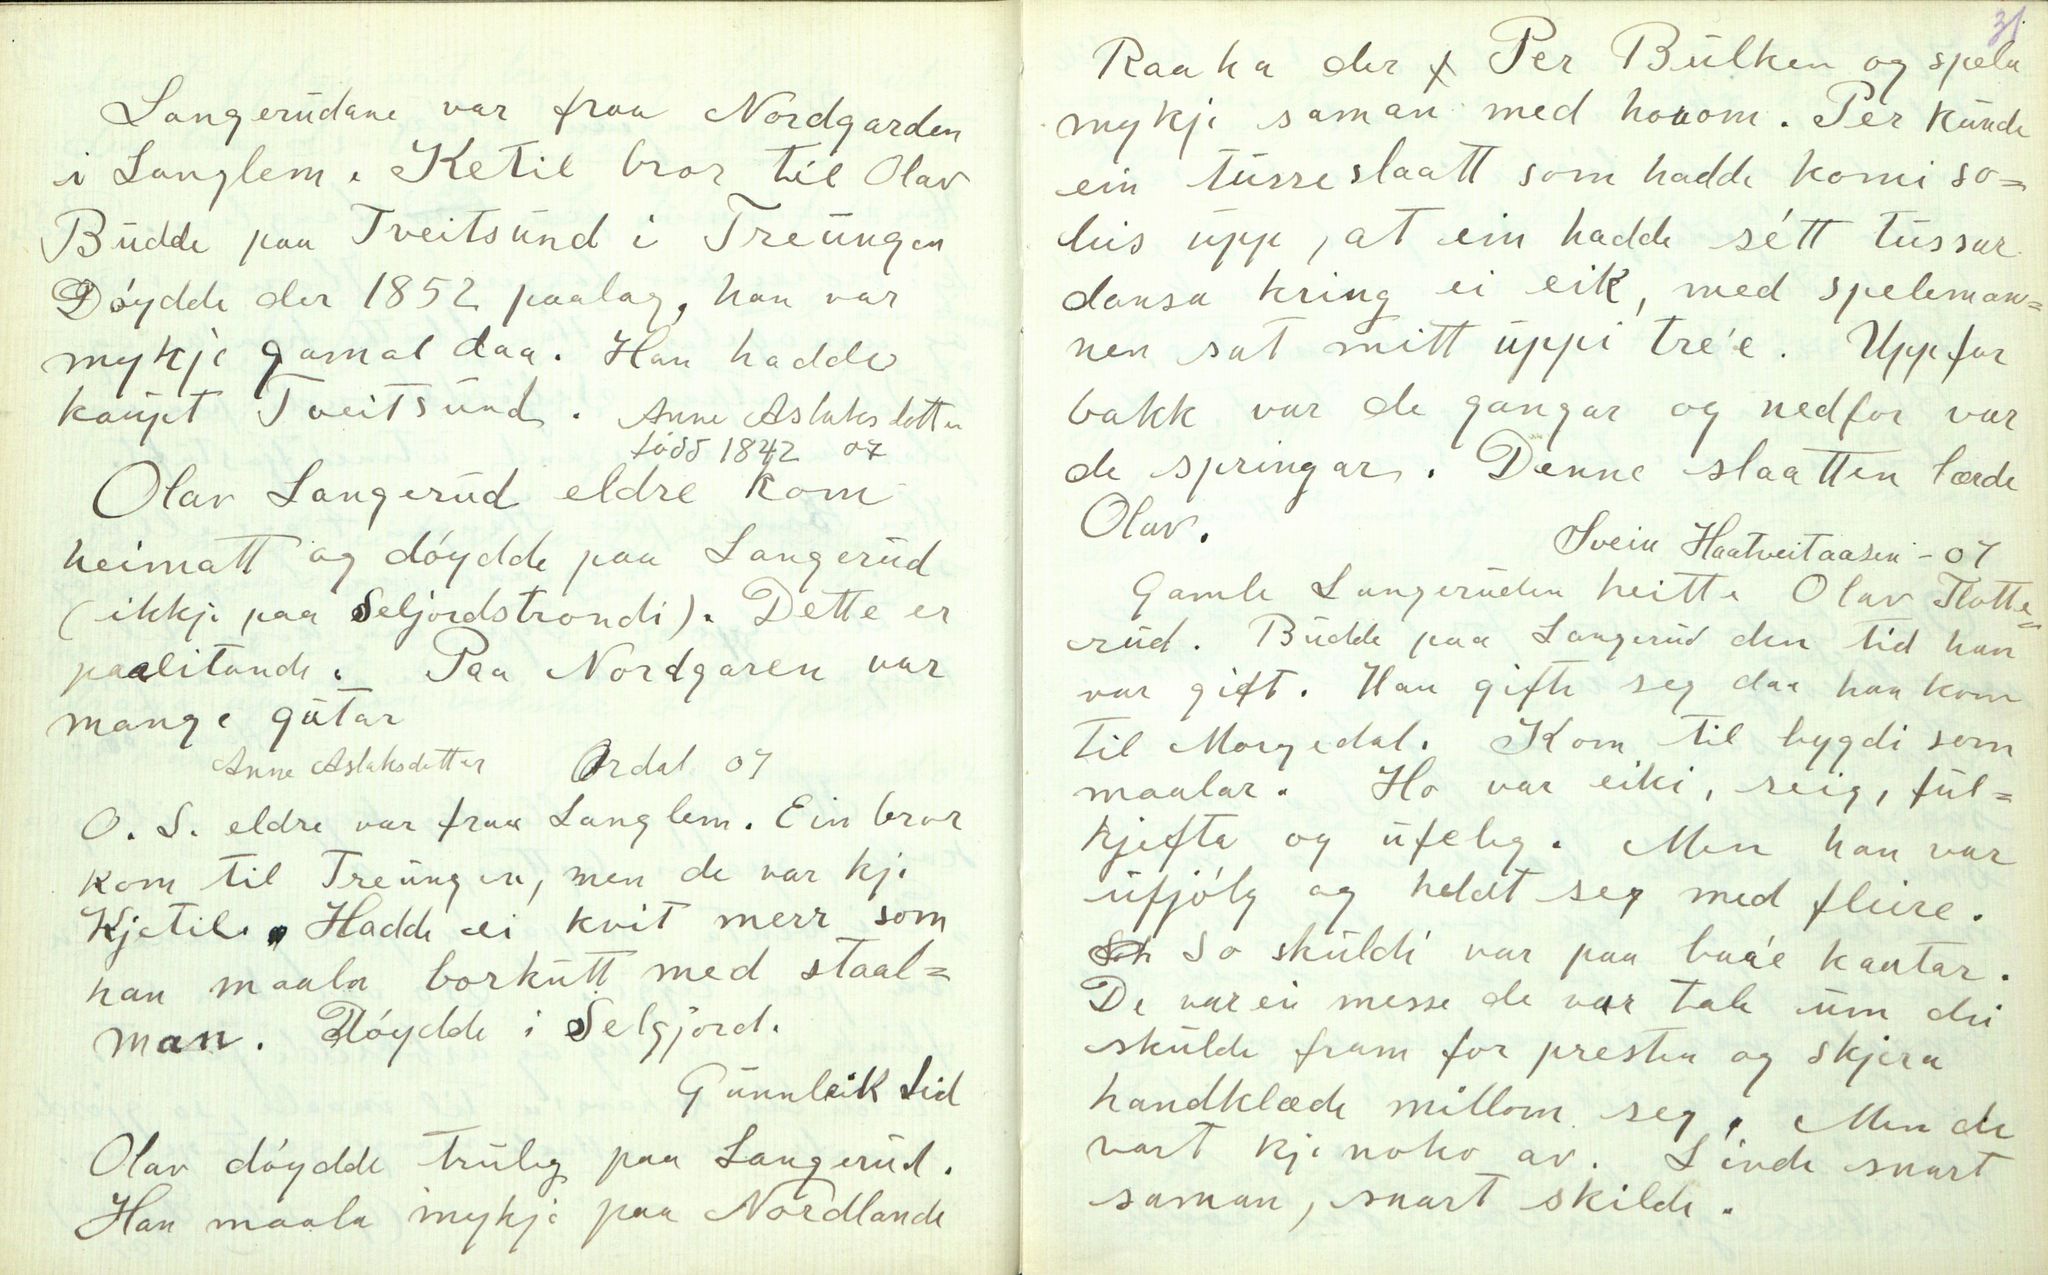 Langerudane var fraa Nordgarden
i Langlem. Ketil bror til Olav
Budde paa Tveitsund i Treungen
Döydde der 1852 paalag, han var
mykje gamal daa. Han hadde
kaupt Tveitsund. Anne Aslaksdotter
född 1842 07
Olav Langerud eldre kom
heimatt og döydde paa Langerud
(ikkje paa Seljordstrondi). Dette er
paalitande. Paa Nordgaren var
mange gutar
Anne Aslaksdotter Ordal 07
O. L. eldre var fraa Langlem. Ein bror
kom til Treungen, men de var kje
Kjetil. Hadde ei kvit merr som
han maala borkutt med staal=
man. Döydde i Selgjord.
Gunnleik Lid
Olav döydde truleg paa Langerud.
Han maala mykje paa Nordlande
31
Raaka der Per Bulken og spela
mykje saman med honom. Per kunde
ein tusseslaatt som hadde komi so=
leis upp, at ein hadde sétt tussar
dansa kring ei eik, med speleman=
nen sat mitt uppi tre'e. Uppfor
bakk var de gangar og nedfor var
de springar. Denne slaatten lærde
Olav.
Svein Haatveitaasen - 07
Gamle Langeruden heitte Olav Flatte=
rud. Budde paa Langerud den tid han
var gift. Han gifte seg daa han kom
til Morgedal. Kom til bygdi som
maalar. Ho var eiki, reig, ful=
kjefta og ufeleg. Men han var
ufjölg og heldt seg med fleire.
So skuldi var paa baae kantar.
De var ei messe de var tale um dei
skulde fram for presten og skjera
handklæde millom seg. Men de
vart kje noko av. Livde snart
saman, snart skilde.